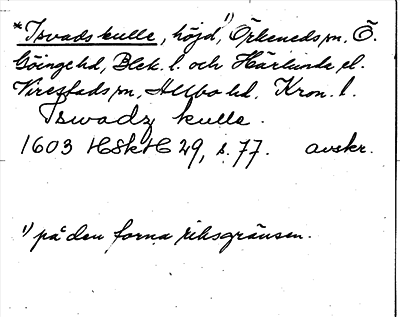 *Isvads kulle, höjd,¹) Örkeneds sn. Ö.
Göinge hd, Blek. l. och Härlunda el.
Virestads sn, Allbo hd. Kron. l.
Iswadz kulle.
1603 HSkH 29, s. 77. avskr.
¹) på den forna riksgränsen.